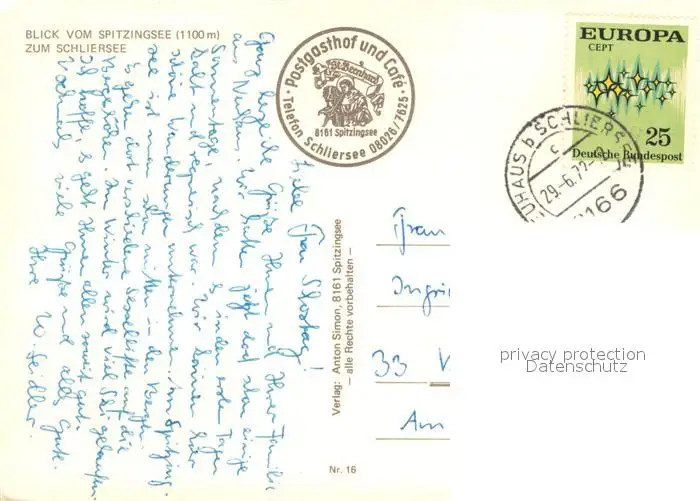 BLICK VOM SPITZINGSEE (1100 m)
ZUM SCHLIERSEE
Postgasthof und Café
St. Bernhard
8161 Spitzingsee
Telefon Schliersee 08026/7625
EUROPA
CEPT
25
Deutsche Bundespost
UHAUS b SCHLIERSEE
c
29.-6.72
8166
Liebe Frau
Ganz herzliche Grüße Ihnen und Ihrer Familie
aus Wir haben jetzt doch schon einige
Sonnentage, nachdem es in den ersten Tagen
kalt und regnerisch war. Wir können hier
schöne Wanderungen unternehmen, im Spitzing-
see ist man schon mitten in den Bergen.
Es gehen dort verschiedene Sessellifte auf die
Berge Im Winter wird viel Ski gelaufen.
Ich hoffe, es geht Ihnen allen soweit gut.
Nochmals viele Grüße und alles Gute.
Ihre
Verlag: Anton Simon, 8161 Spitzingsee
– alle Rechte vorbehalten –
Nr. 16
Frau
Ingri
33
Am
privacy protection
Datenschutz